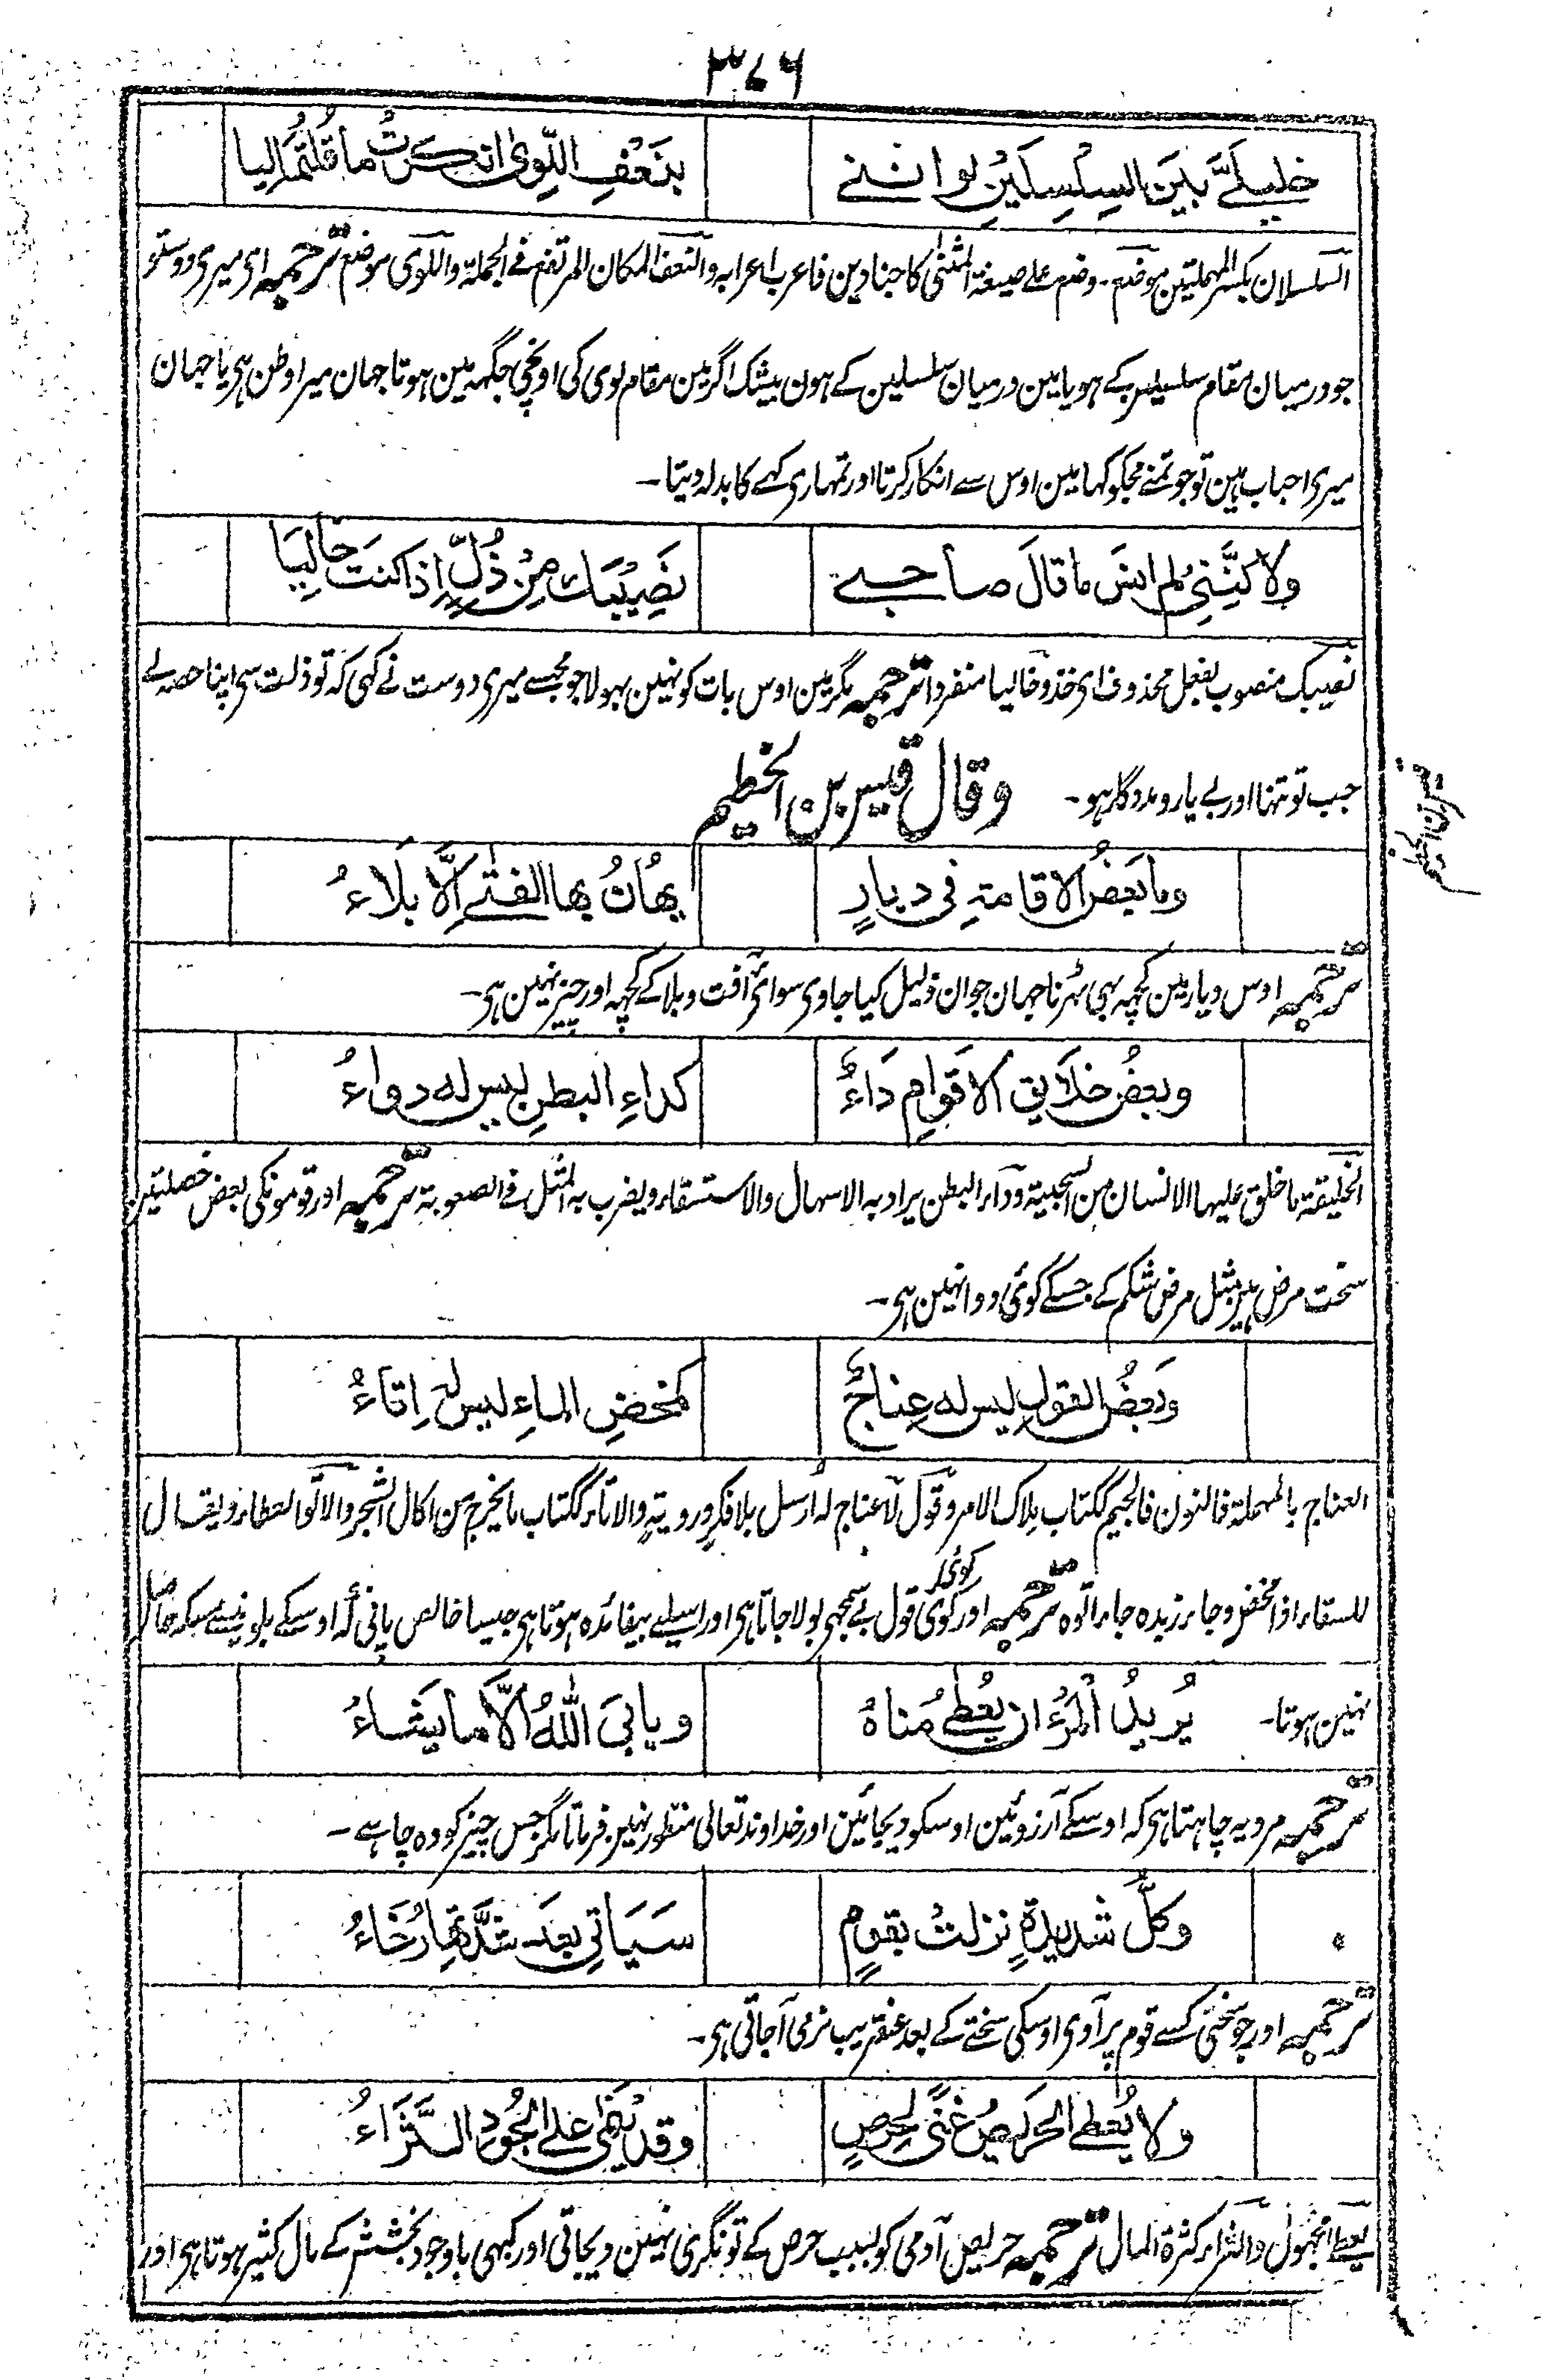 ٣٧٦
خليلَيَّ بَينَ السِلسِلَينِ لو اننے بنَعْفِ اللِّوى انكرتُ ما قُلتُمَا لِيا
السلسلان بکسر المہملتین موضع۔ وضع علے صیغۃ المثنیٰ کاجنادین فاعرب اعرابہ والنعف المکان المرتفع فے الجملۃ واللوی موضع ترجمہ ای میری دوستو
جو درمیان مقام سلسلین کے ہو یا مین درمیان سلسلین کے ہون بیشک اگر مین مقام لوی کی اونچی جگہہ مین ہوتا جہان میرا وطن ہی یا جہان
میری احباب ہین تو جو تمنے مجکو کہا مین اوس سے انکار کرتا اور تمہاری کہے کا بدلہ دیتا۔
ولاكنَّنِي لم انسَ ما قالَ صاحبے نصِيْبَك مِنْ ذُلٍّ اِذا كنتَ خالِيَا
نصیبک منصوب بفعل محذوف ای خذ وخالیا منفردا ترجمہ مگر مین اوس بات کو نہین بہولا جو مجسے میری دوست نے کہی کہ تو ذلت سی اپنا حصہ لے
جب تو تنہا اور بے یار و مددگار ہو۔ وقال قيس بن الخطيم
قیس بن الخطیم
وما بَعضُ الاقامةِ في ديارٍ يهانُ بها الفتے اِلَّا بَلاءُ
ترجمہ اوس دیار مین کچہہ بہی ٹہرنا جہان جوان ذلیل کیا جاوی سوائے آفت و بلا کے کچہہ اور چیز نہین ہی۔
وبعضُ خلايق الاقوامِ دَاءٌ كداءِ البطنِ ليس له دواءُ
الخلیقۃ ما خلق علیہا الانسان من السجیۃ وداء البطن یراد بہ الاسہال والاستسقاء ویضرب بہ المثل فے الصعوبۃ ترجمہ اور قومونکی بعض خصلتین
سخت مرض ہین مثل مرض شکم کے جسکے کوئی دوا نہین ہی۔
وبَعضُ القولِ ليس له عِناجٌ كمخضِ الماءِ ليس لهٗ اِتاءُ
العناج بالمہملۃ فالنون فالجیم ککتاب ملاک الامر وقول لا عناج لہ اُرسل بلا فکر ورویۃٍ والاتاء ککتاب ما یخرج من اکال الشجر والاتو العطاء ویقال
للسقاء اذا مخض وجاء زبدہ جاء اتوہ ترجمہ اور کوئی کوئی قول بے سمجہی بولا جاتا ہی اور اسیلیے بیفائدہ ہوتا ہی جیسا خالص پانی کہ اوسکے بلونیسے مسکہ حاصل
نہین ہوتا۔ يُريدُ المرءُ ان يُعطٰے مُناهُ ويابَى اللّٰهُ اِلَّا ما يَشاءُ
ترجمہ مرد یہ چاہتا ہی کہ اوسکے آرزوئین اوسکو دیجائین اور خداوند تعالی منظور نہین فرماتا مگر جس چیز کو وہ چاہے۔
وكلُّ شديدةٍ نزلتْ بقومٍ سَيَاتِي بعدَ شدَّتِها رَخَاءُ
ترجمہ اور جو سختی کسے قوم پر آوی اوسکی سختے کے بعد عنقریب نرمی آجاتی ہی۔
ولا يُعطٰے الحَريصُ غِنًى لحِرصٍ وقد يَنمي على الجُودِ الثَّرَاءُ
یعطے مجہول والثراء کثرۃ المال ترجمہ حریص آدمی کو بسبب حرص کے تونگری نہین دیجاتی اور کبہی باوجود بخشش کے مال کثیر ہوتا ہی اور